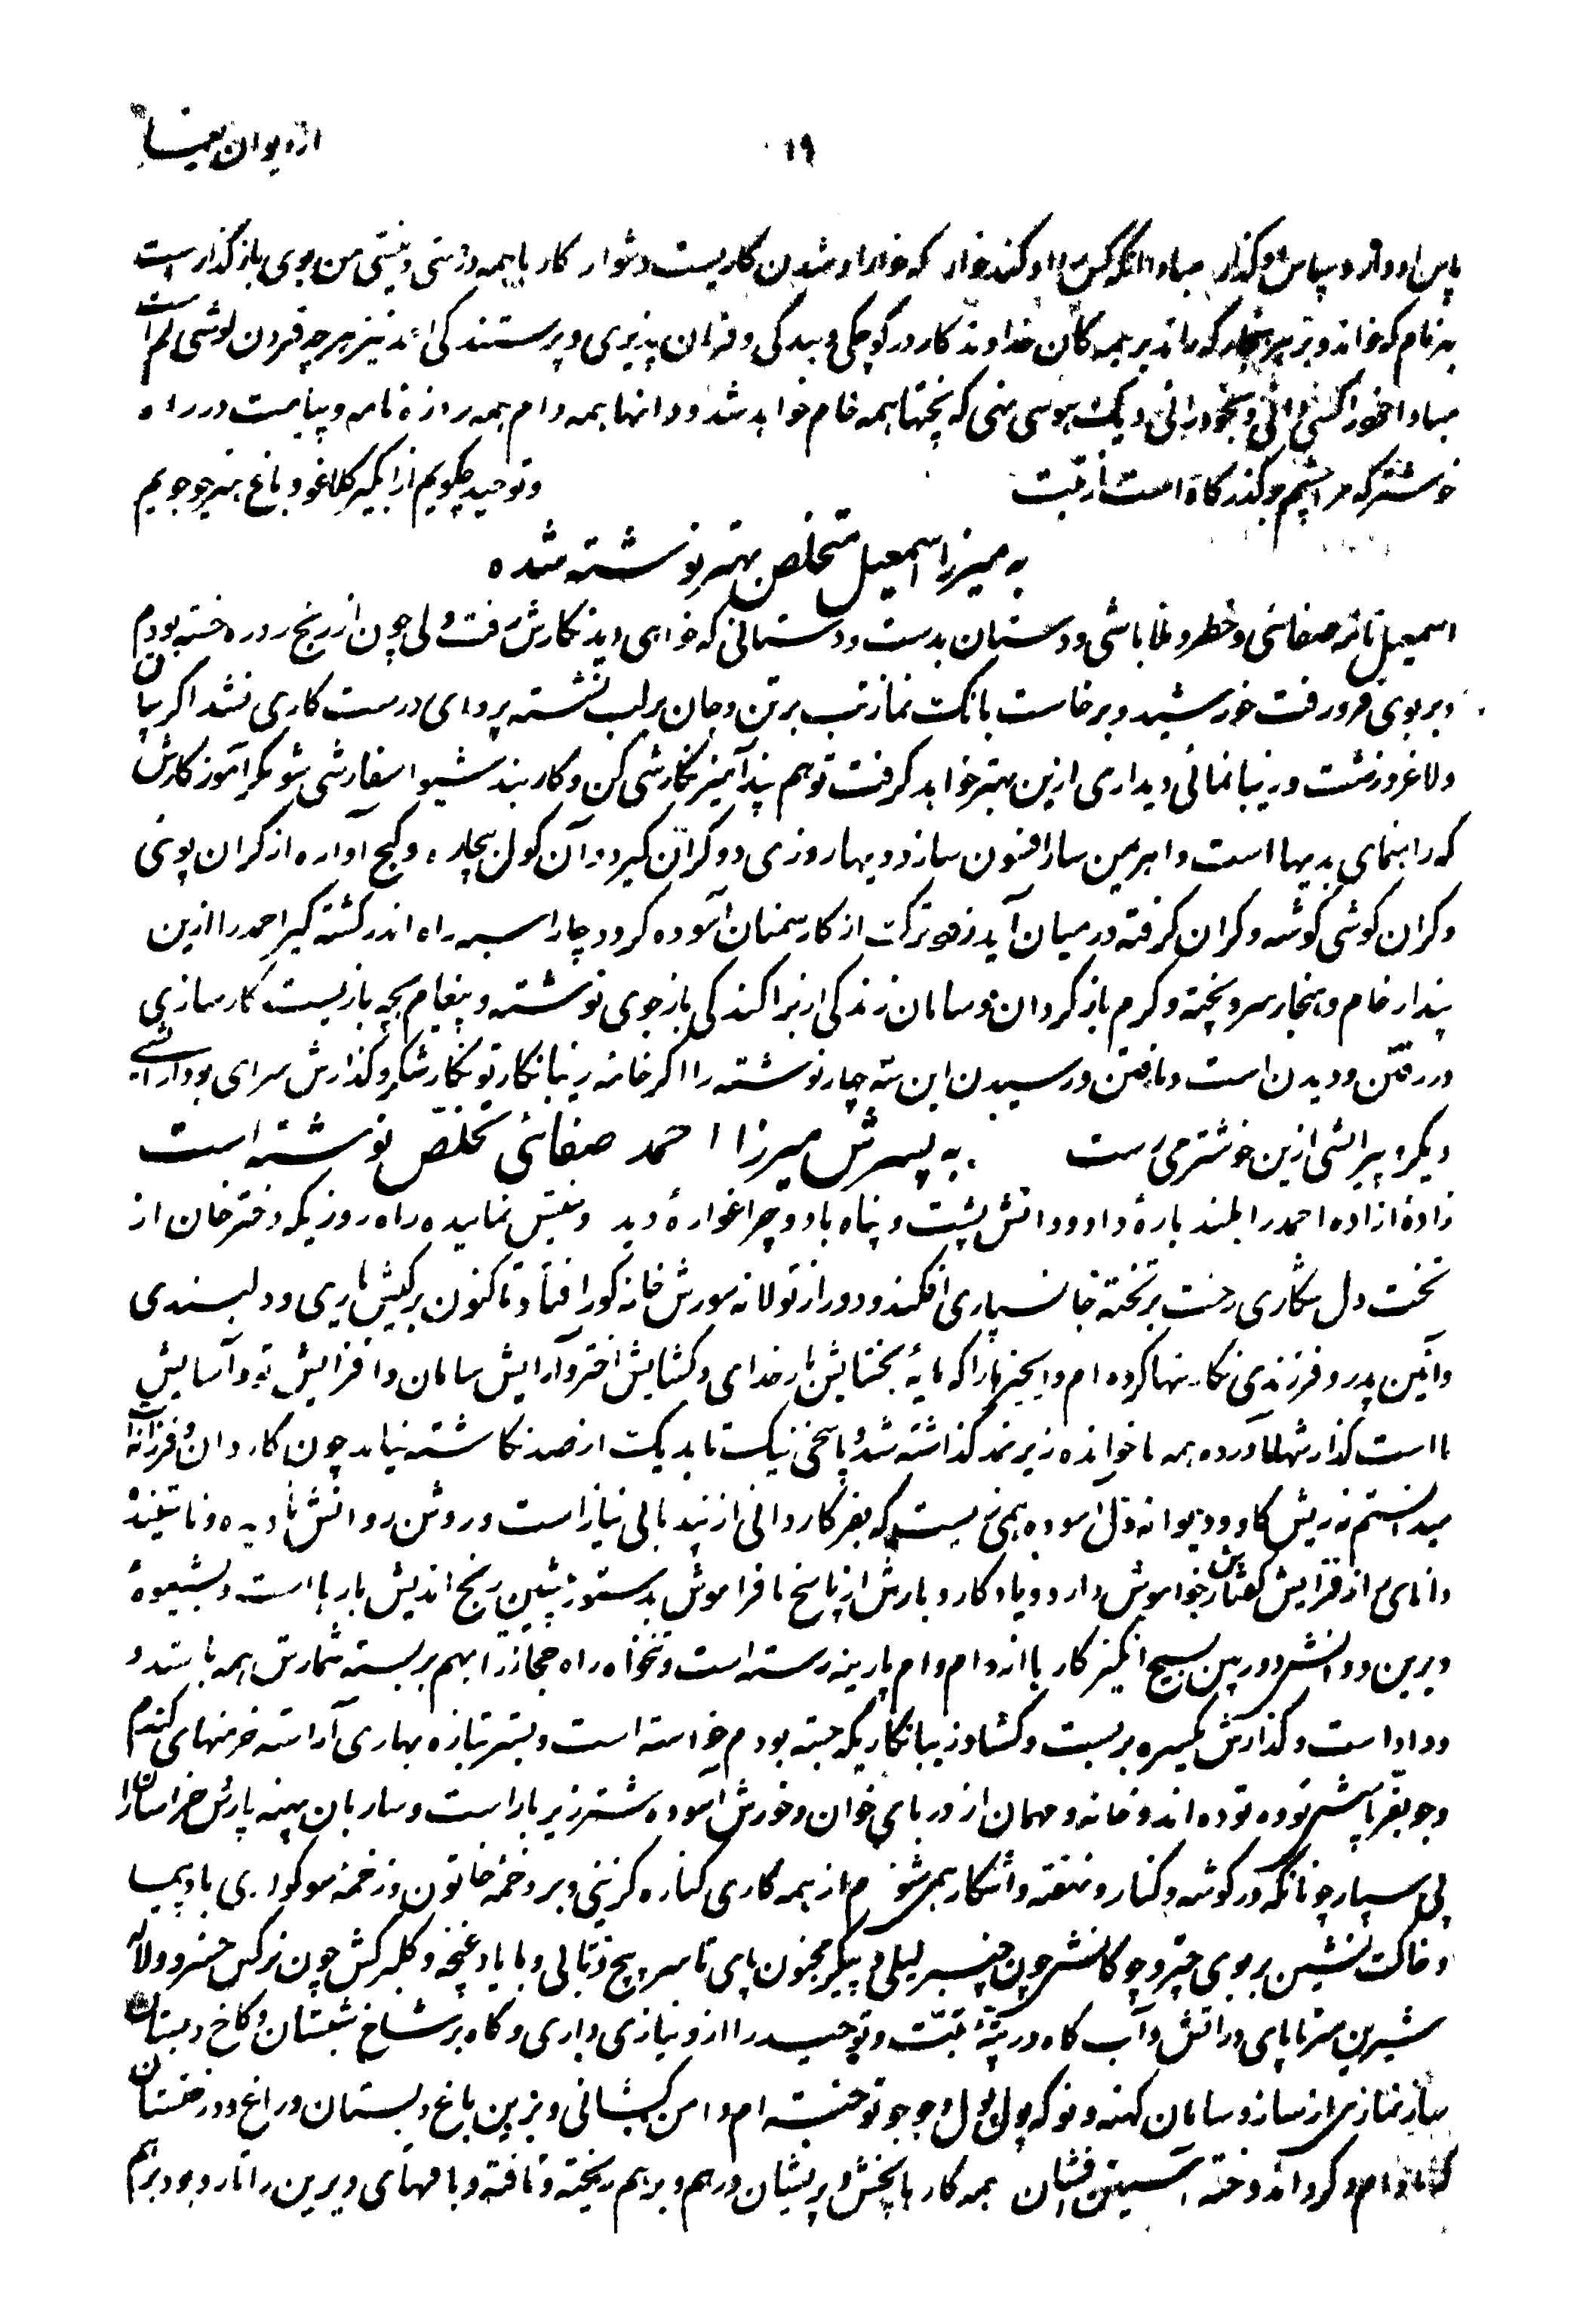 ۱۹
از دیوان یغما
پاس او دار و سپاس او گذار مبادا آنکه کس را او کند خوار که خوار او شدن کاریست دشوار کار با همه درستی و نیستی من بوی باز گذار است
به نام که خواند و بر هر هنجار که ماند بر همه کان خداوند کار در کوچکی و بندگی و فرمان پذیری و پرستندگی اند نیز هر چه فردن لوشی لم است
مبادا خود را کنی و بخود رانی دیک هوسی پزی که پختها همه خام خواهد شد و دانها همه دام همه روزه نامه و پیامت در راه
خوشتر که مرا چشم و گذرگاه است از تبت
و توحید چگویم از آبگیر کلاغو و باغ هنر چو جویم
به میرزا اسمعیل متخلص بهنر نوشته شده
اسمعیل نامه صفائی و خطر و باشی و دستان بدست و دستانی که خواهی دید نگارش رفت ولی چون از رنج روزه خسته بودم
و بر بوی فرو رفت خورشید و برخاست بانگ نماز تب بر تن و جان بر لب نشسته پروای درست کاری نشد اگر بیان
و لاغر و زشت و زیبا نمائی دیداری ازین بهتر خواهد گرفت تو هم پند آمیز نگارشی کن و کار بند شیوا سفارشی شو مگر آموزگارش
که راهنمای بدیها است و اهرمن سار افسون ساز دیبها روزی دو کران گیرد و آن کول بیچاره و گیج آواره از گران پوئی
و گران گوشی گوشه و کران گرفته در میان آید زهی ترک از کار سمنان آسوده گردد چار اسبه راه اندر گشته گیر احمد را ازین
پندار خام و هنجار سرد پخته و گرم باز گردان و سامان زندگی از پراکندگی باز جوی نوشته و پیغام بچه بازیست کارسازی
در رفتن و دیدن است و یافتن و رسیدن این سه چار نوشته را اگر خامه زیبا نگار تو نگارشگر و گذارش سرای بود آرایشی
دیگر و پیرایشی ازین خوشتر می رست
به پسرش میرزا احمد صفائی تخلص نوشته است
زاده آزاده احمد را بلند باره داد و دانش پشت و پناه باد و چراغواره دید و بینش نماینده راه روزیکه دختر خان از
تخت دل شکاری رخت بر تخته جانسپاری افکند و دور از تو لانه مورش خانه گور افتاد تاکنون بر کیش یاری و دلبندی
و آئین پدر و فرزندی نگارنها کرده ام و انجیزها را که مایه بخشایش بار خدای و گشایش اختر و آرایش سامان و افزایش تو و آسایش
ما است گذارشها آورده همه ناخوانده زیر نمد گذاشته شد و پاسخی نیک تا بد یک از صد نگاشته نیاید چون کاردان و فرزانه ات
میدانستم نه ریش گاو و دیوانه دل آسوده همی زیست که بفر کاردانی از پند ما بی نیاز است و روشن روانش نادیده و ناشنیده
دانای از فزایش گفتارش خواموش دارد و یاد کار و بارش از پاسخ ما فراموش بدستور پیشین رنج اندیش بارها است و بشیوه
دیرین دو دانش دوربین بسیج انگیز کارها از دام وام پارینه رسته است و تنخواه راه حجاز را بهم بر بسته شمارش همه با ستد و
داد است و گذارش یکسره بر بست و گشاد زیبا نگاریکه جسته بودم خواسته است و بستر تازه بهاری آراسته خرمنهای گندم
و جو بفر پاش توده توده اند و خانه و مهمان از دربای خوان و خورش آسوده شتر زیر بار است و ساربان پهنه پارش خراسان را
پی سپار چونانکه در گوشه و کنار و نهفته و آشکار همی شنوم از همه کاری کناره گزینی و بر دخمه خاتون و زخمه سوگواری باد پیما
و خاک نشین بر موی چتر و چوگانش چون چنبر لیلی و پیکر مجنون پای تا سر پیچ و تابی و با یاد غنچه و گلبرگش چون نرگس خسرو و لاله
شیرین سر تا پای در آتش و آب گاه در پته تبت و توحید راز و نیازی داری و گاه بر شاخ شبستان و کاخ دبستان
ساز نمازی از ساز و سامان کهنه و نو که پول پول و جو جو توختسته ام دامن کشانی و زین باغ و بستان و راغ و درختستان
گشاده ام و گرد آندوخته آستین فشان همه کارها پخش و پریشان و درهم و برهم ریخته و تافته و بافتهای دیرین را تار و پود برهم